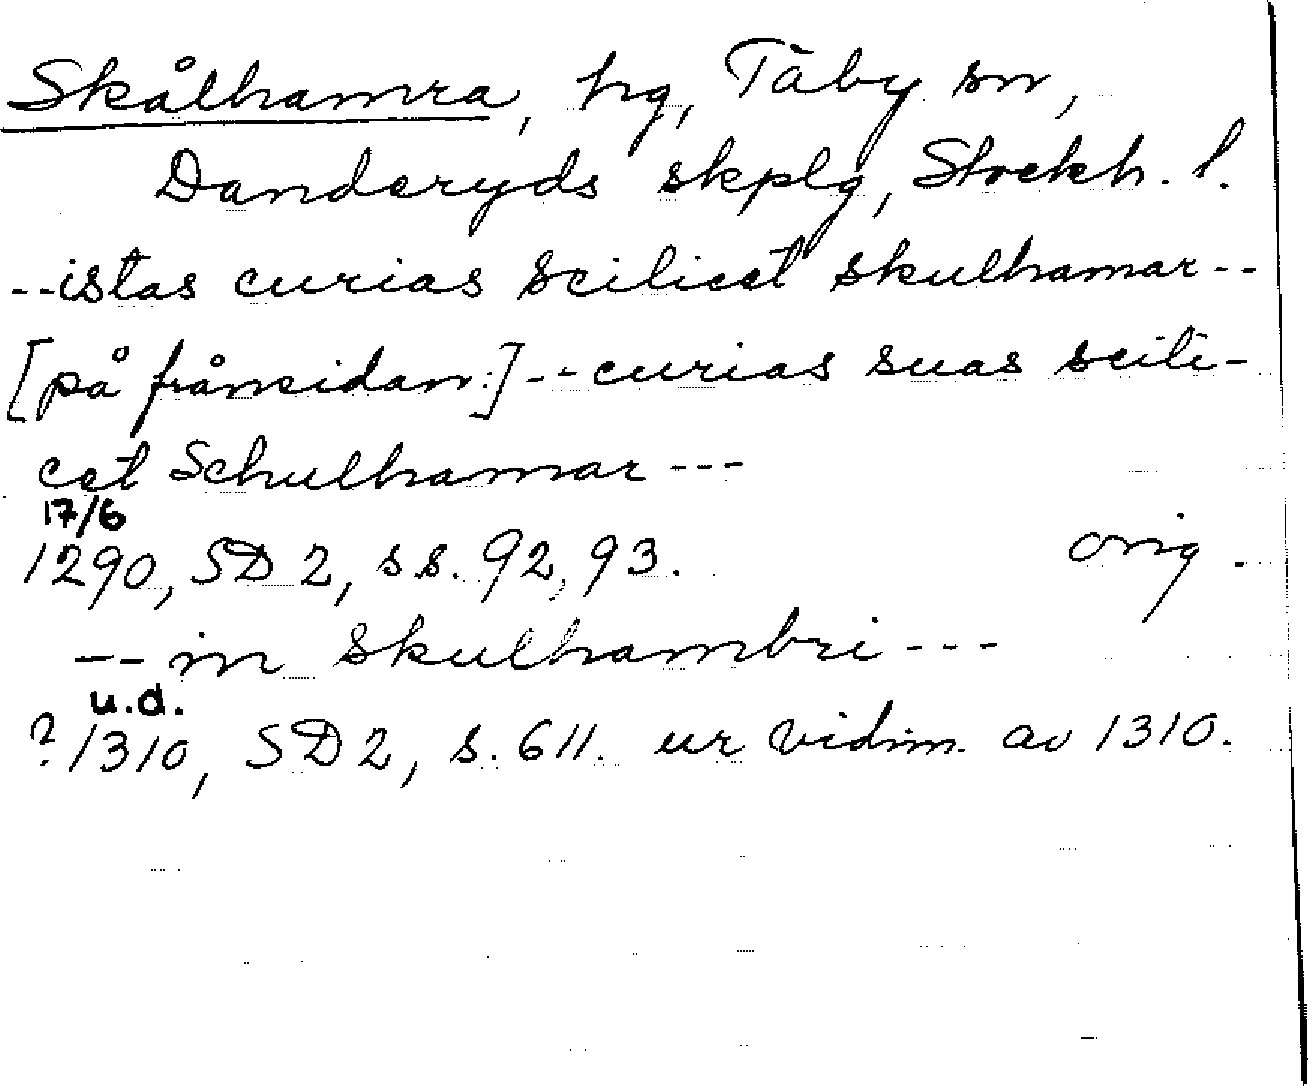 Skålhamra, hg, Täby sn,
Danderyds skplg, Stockh. l.
--istas curias scilicet skulhamar--
[på frånsidan:] --curias suas scili-
cet Schulhamar ---
17/6
1290, SD 2, ss. 92, 93. orig.
-- in skulhambri ---
u.d.
? 1310, SD 2, s. 611. ur vidim. av 1310.